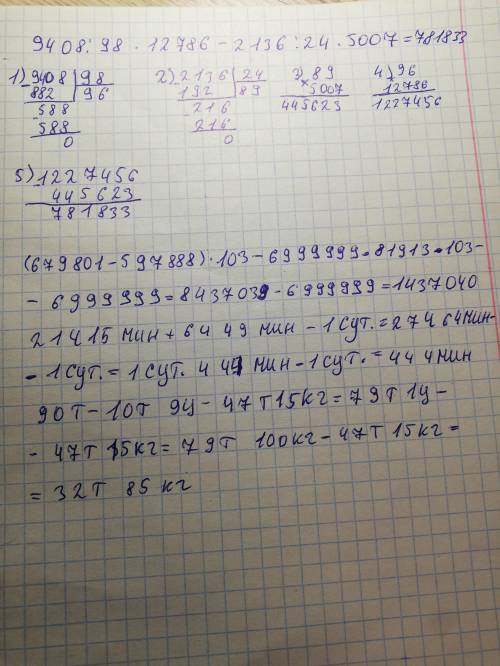 9408:98·12786-2136:24·5007=781833
1) 9408 | 98 2) 2136 | 24 3) 89 4) 96
882 | 96 192 | 89 × 5007 × 12786
588 216 445623 1227456
588 216
0 0
5) 1227456
445623
781833
(679801-597888)·103-6999999=81913·103-
-6999999=8437039-6999999=1437040
21415 мин + 6449 мин - 1 сут. = 27464 мин-
-1 сут. = 1 сут. 444 мин - 1 сут. = 444 мин
90т-10т 9ц-47т15кг=79т 1ц-
-47т 15кг=79т 100кг-47т 15кг=
=32т 85 кг